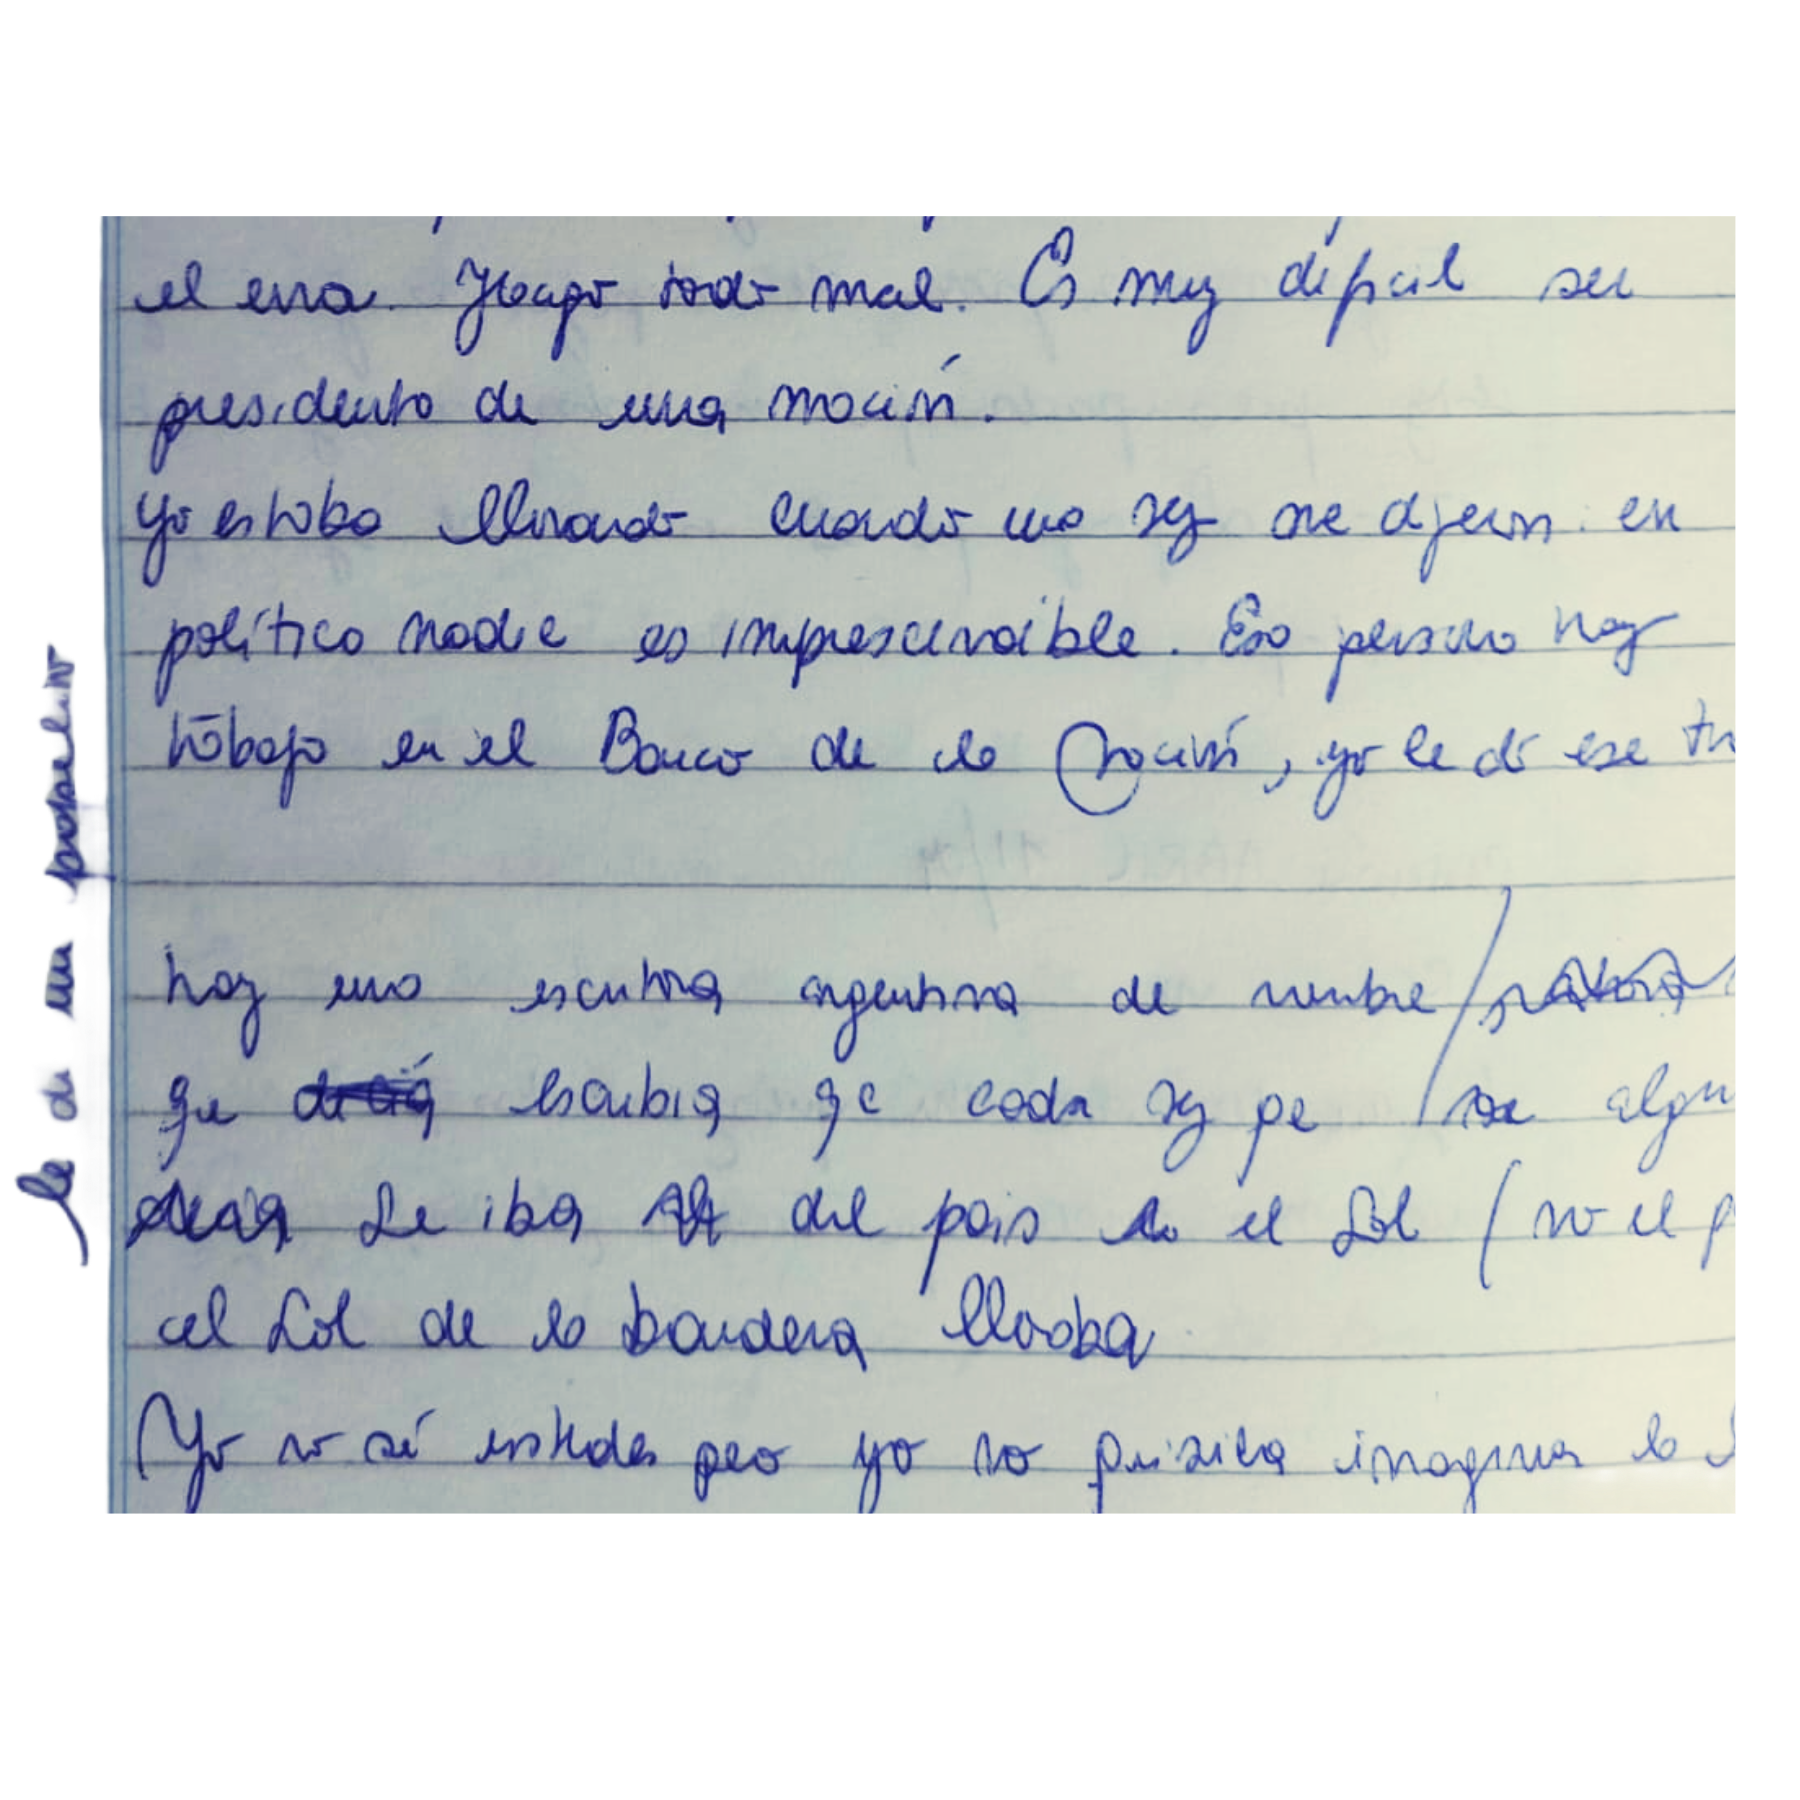 el era. Hago todo mal. Es muy difícil ser
presidenta de una nación.
Yo estaba llorando cuando una vez me dijeron: en
política nadie es imprescindible. Esa persona hoy
trabaja en el Banco de la Nación, yo le di ese
le di un
hay una escritora argentina de nombre
que decía escribía qe cada vez qe se
decía se iba del país el Sol (no el
el Sol de la bandera lloraba
Yo no sé ustedes pero yo no quisiera imaginar la